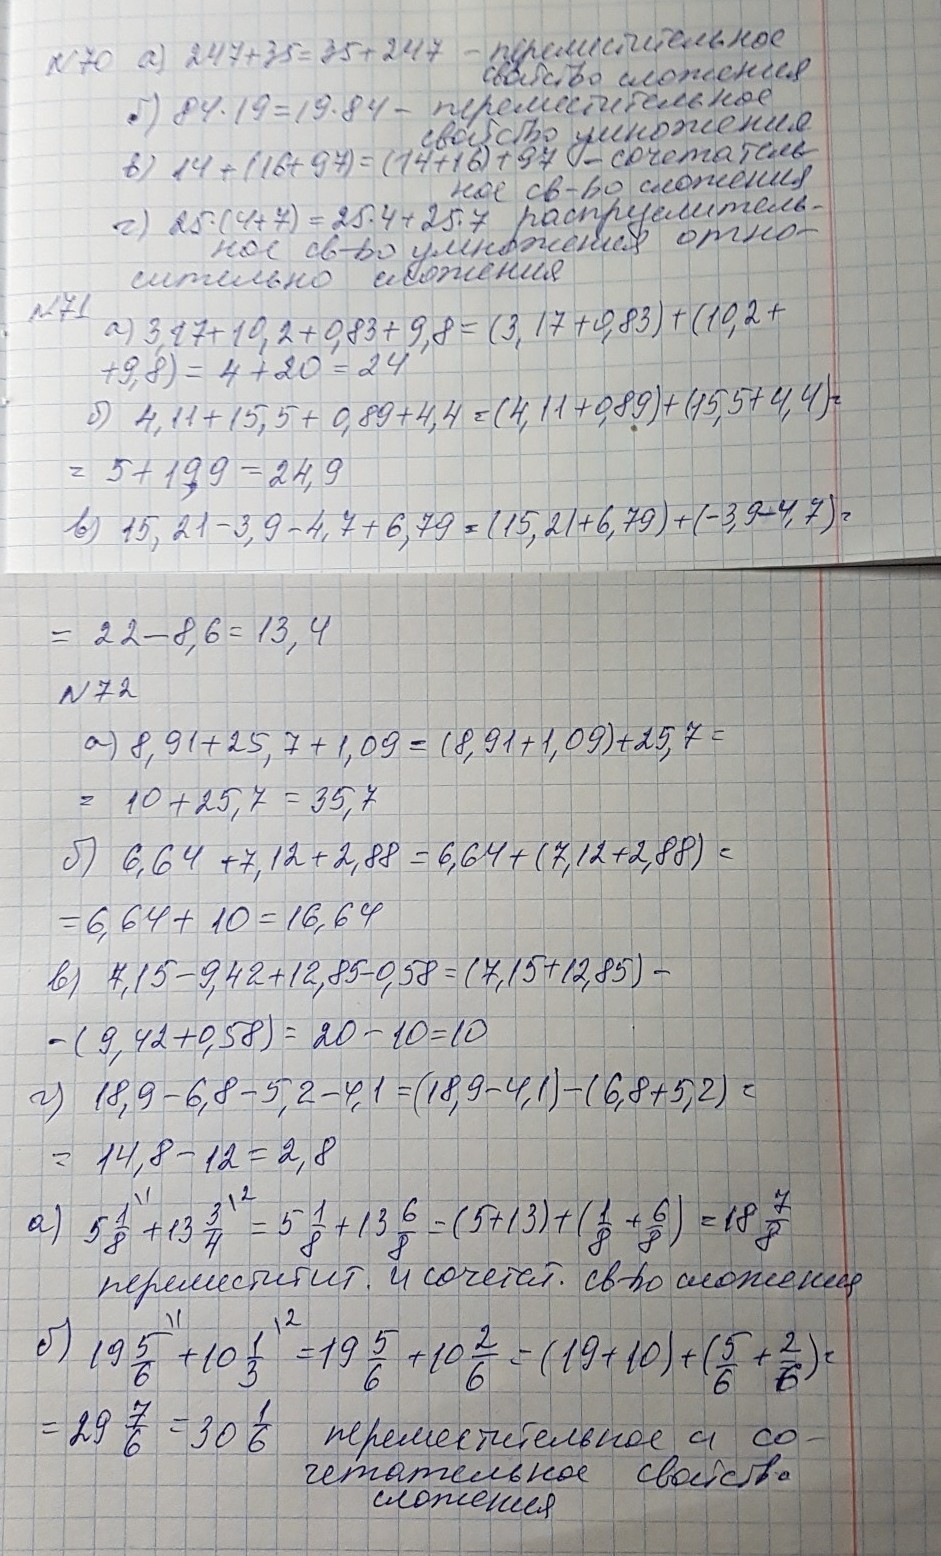 №70 а) 247+35=35+247 - переместительное
свойство сложения
б) 84·19=19·84 - переместительное
свойство умножения
в) 14+(16+97)=(14+16)+97 - сочетатель
ное св-во сложения
г) 25·(4+7)=25·4+25·7 распределитель-
ное св-во умножения отно-
сительно сложения
№71
а) 3,17+10,2+0,83+9,8=(3,17+0,83)+(10,2+
+9,8)=4+20=24
б) 4,11+15,5+0,89+4,4=(4,11+0,89)+(15,5+4,4)=
=5+19,9=24,9
в) 15,21-3,9-4,7+6,79=(15,21+6,79)+(-3,9-4,7)=
=22-8,6=13,4
№72
а) 8,91+25,7+1,09=(8,91+1,09)+25,7=
=10+25,7=35,7
б) 6,64+7,12+2,88=6,64+(7,12+2,88)=
=6,64+10=16,64
в) 7,15-9,42+12,85-0,58=(7,15+12,85)-
-(9,42+0,58)=20-10=10
г) 18,9-6,8-5,2-4,1=(18,9-4,1)-(6,8+5,2)=
=14,8-12=2,8
а) 5 1/8 \1 + 13 3/4 \2 = 5 1/8 + 13 6/8 = (5+13)+(1/8+6/8) = 18 7/8
переместит. и сочетат. св-во сложения
б) 19 5/6 \1 + 10 1/3 \2 = 19 5/6 + 10 2/6 = (19+10)+(5/6+2/6)=
=29 7/6 = 30 1/6 переместительное и со-
четательное свойства
сложения